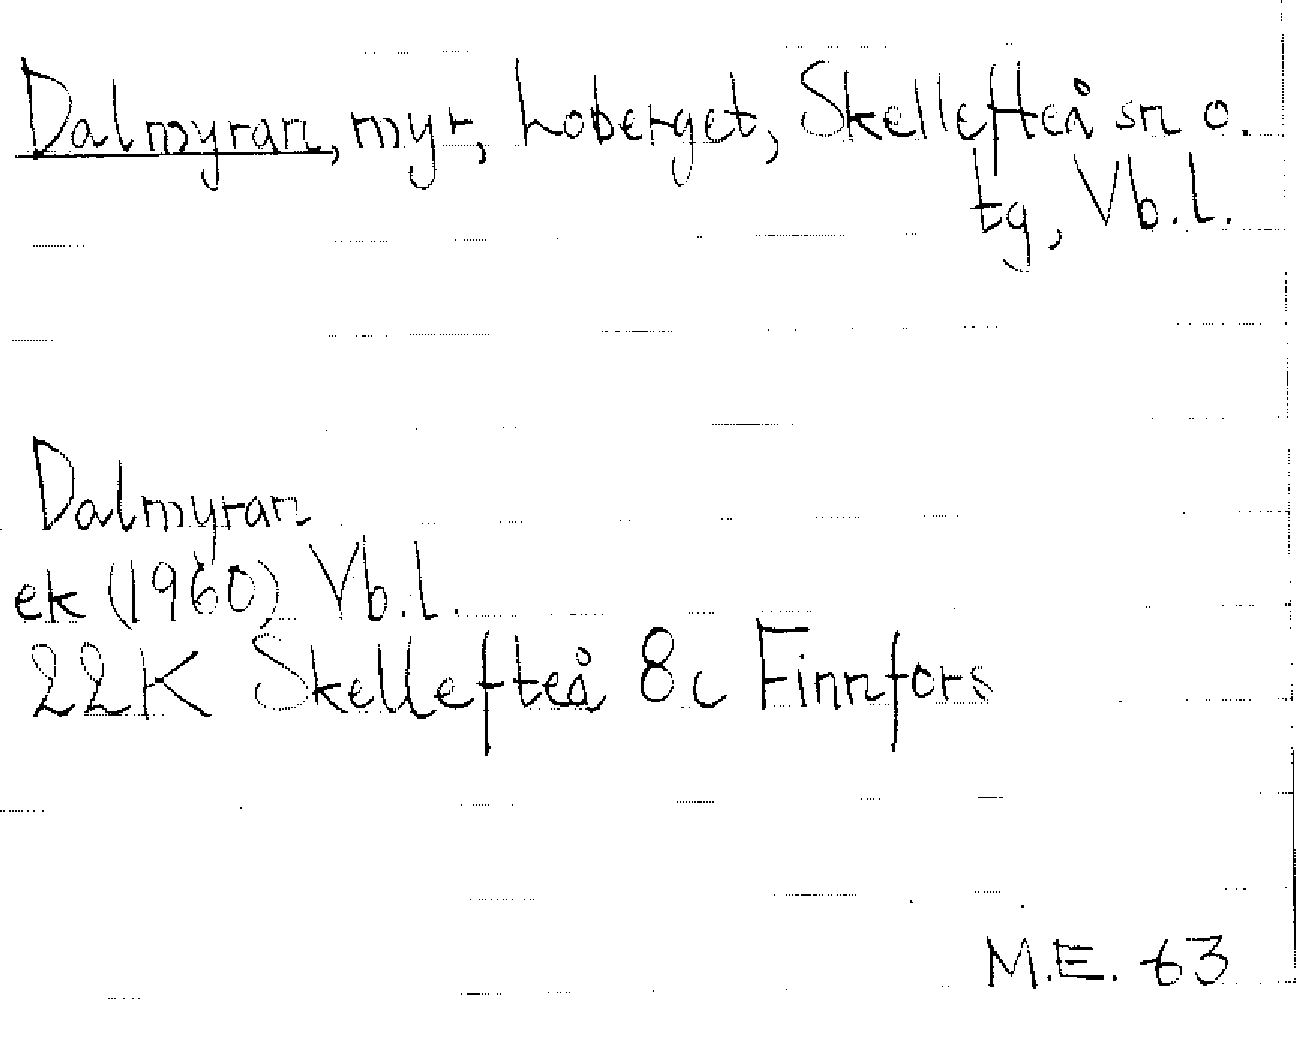 Dalmyran, myr, Loberget, Skellefteå sn o.
tg, Vb.l.
Dalmyran
ek (1960) Vb.l.
22K Skellefteå 8c Finnfors
M.E. 63